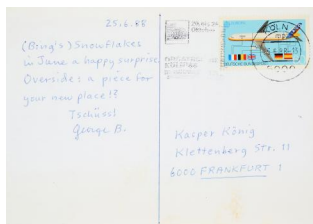 25.6.88
(Bing's) Snowflakes
in June a happy surprise
Overside: a piece for
your new place!?
Tschüss!
George B.
KÖLN
DEUTSCHE BUNDESPOST
Kasper König
Klettenberg Str. 11
6000 FRANKFURT 1